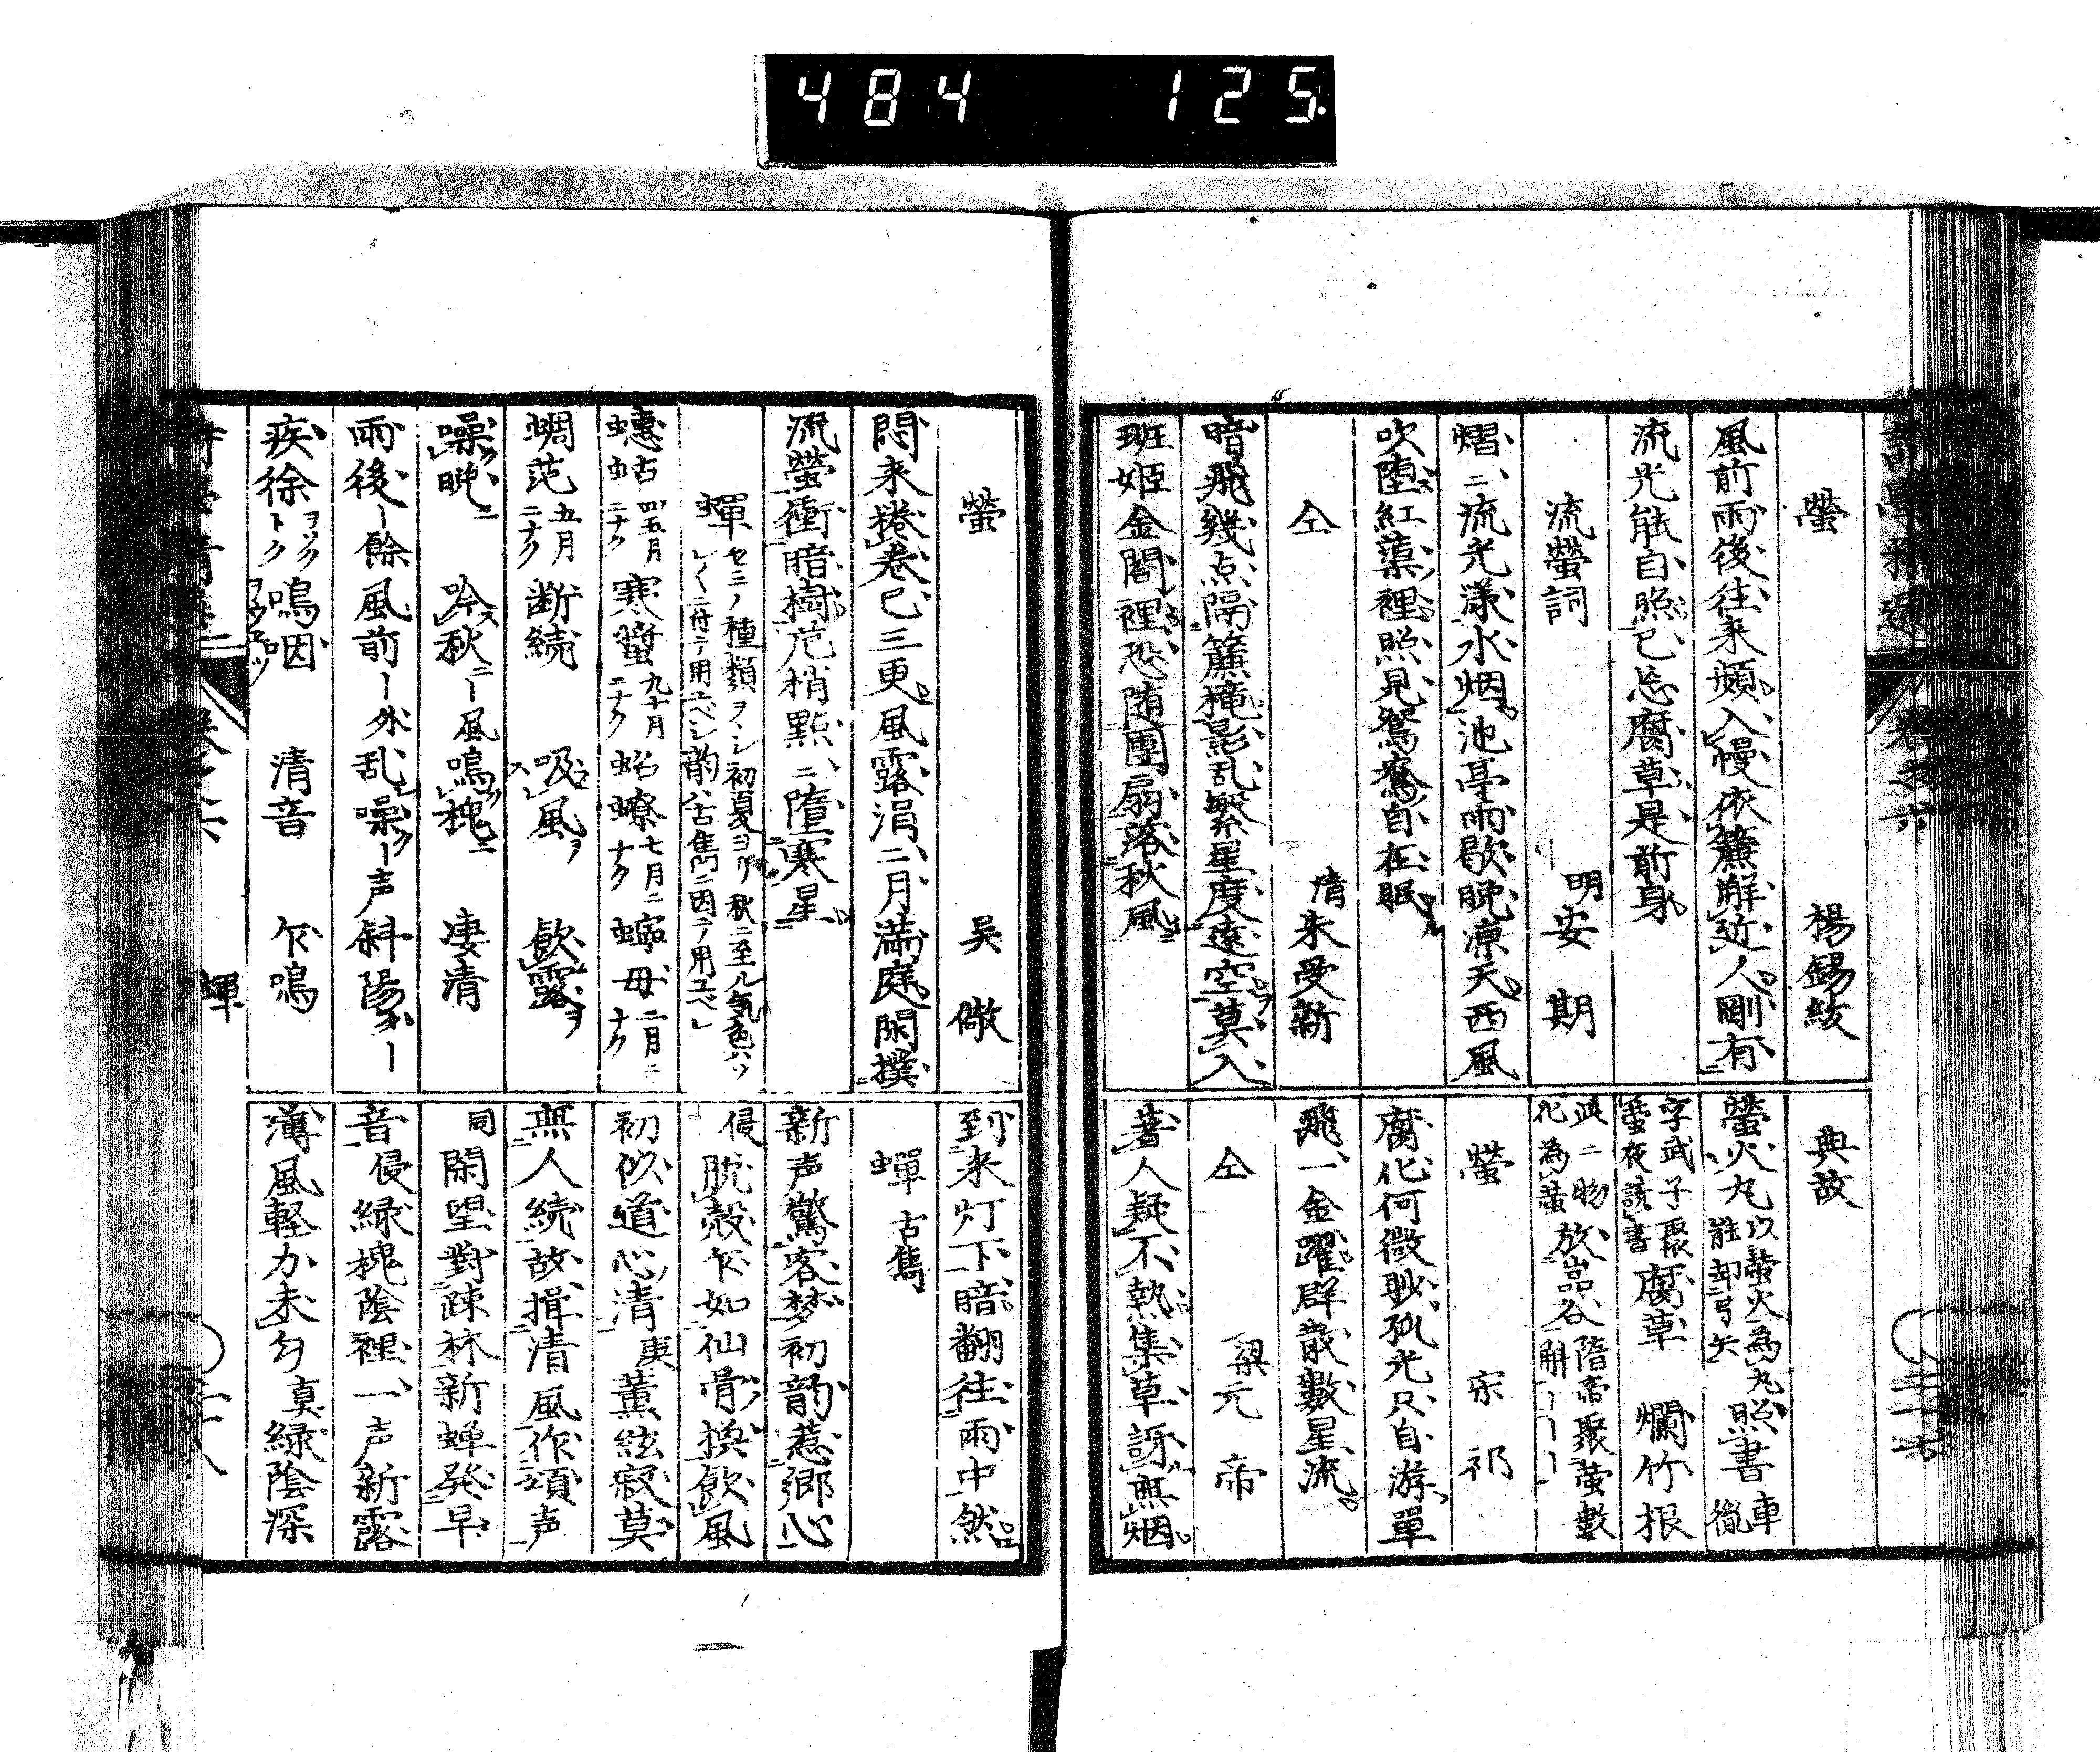 484 125
螢 楊錫紱
風前雨後往来頻入幔依簾解近人剛有
流光能自照已忘腐草是前身
流螢詞 明 安期
熠二流光漾水烟池亭雨歇晩凉天西風
吹堕紅蕖裡照見鴛鴦自在眠
仝 清 朱受新
暗飛幾点隔簾櫳影乱繁星度遠空莫入
班姫金閣裡恐随團扇落秋風
典故
螢火丸 以螢火為丸能却弓矢 照書 車胤
字武子聚螢夜該書 腐草 爛竹根
此二物化為螢 放嵓谷 隋帝聚螢數斛
螢 宋祁
腐化何微眇孤光只自游單
飛一金躍群散數星流
仝 梁元帝
著人疑不熱集草訝無烟
螢 吴儆
悶来捲卷已三更風露涓二月満庭閑撲
流螢衝暗樹荒梢點二墮寒星
蟬 セミノ種類ヲシ初夏ヨリ秋ニ至ル気色ハソレ〱ニ付テ用ユベシ韵ハ古雋ニ因テ用ユベシ
蟪蛄 四五月ニナク 寒螿 九十月ニナク 蛁蟟 七月ニナク 蟀母 二月ニナク
蜩范 五月ニナク 断続 吸風 飲露
噪晩 吟秋 風鳴槐 凄清
雨後ー餘風前ー外乱噪ー声斜陽ー
疾徐 鳴咽 清音 乍鳴
到来灯下暗翻往雨中然
蟬 古雋
新声驚客梦初韵惹郷心
侵 脱殻乍如仙骨換飲風
初似道心清 庚 薫絃寂莫
無人続故揖清風作頌声
同 閑望對疎林新蝉発早
音 侵 緑槐陰裡一声新露
薄風軽力未匀 真 緑陰深
蟬